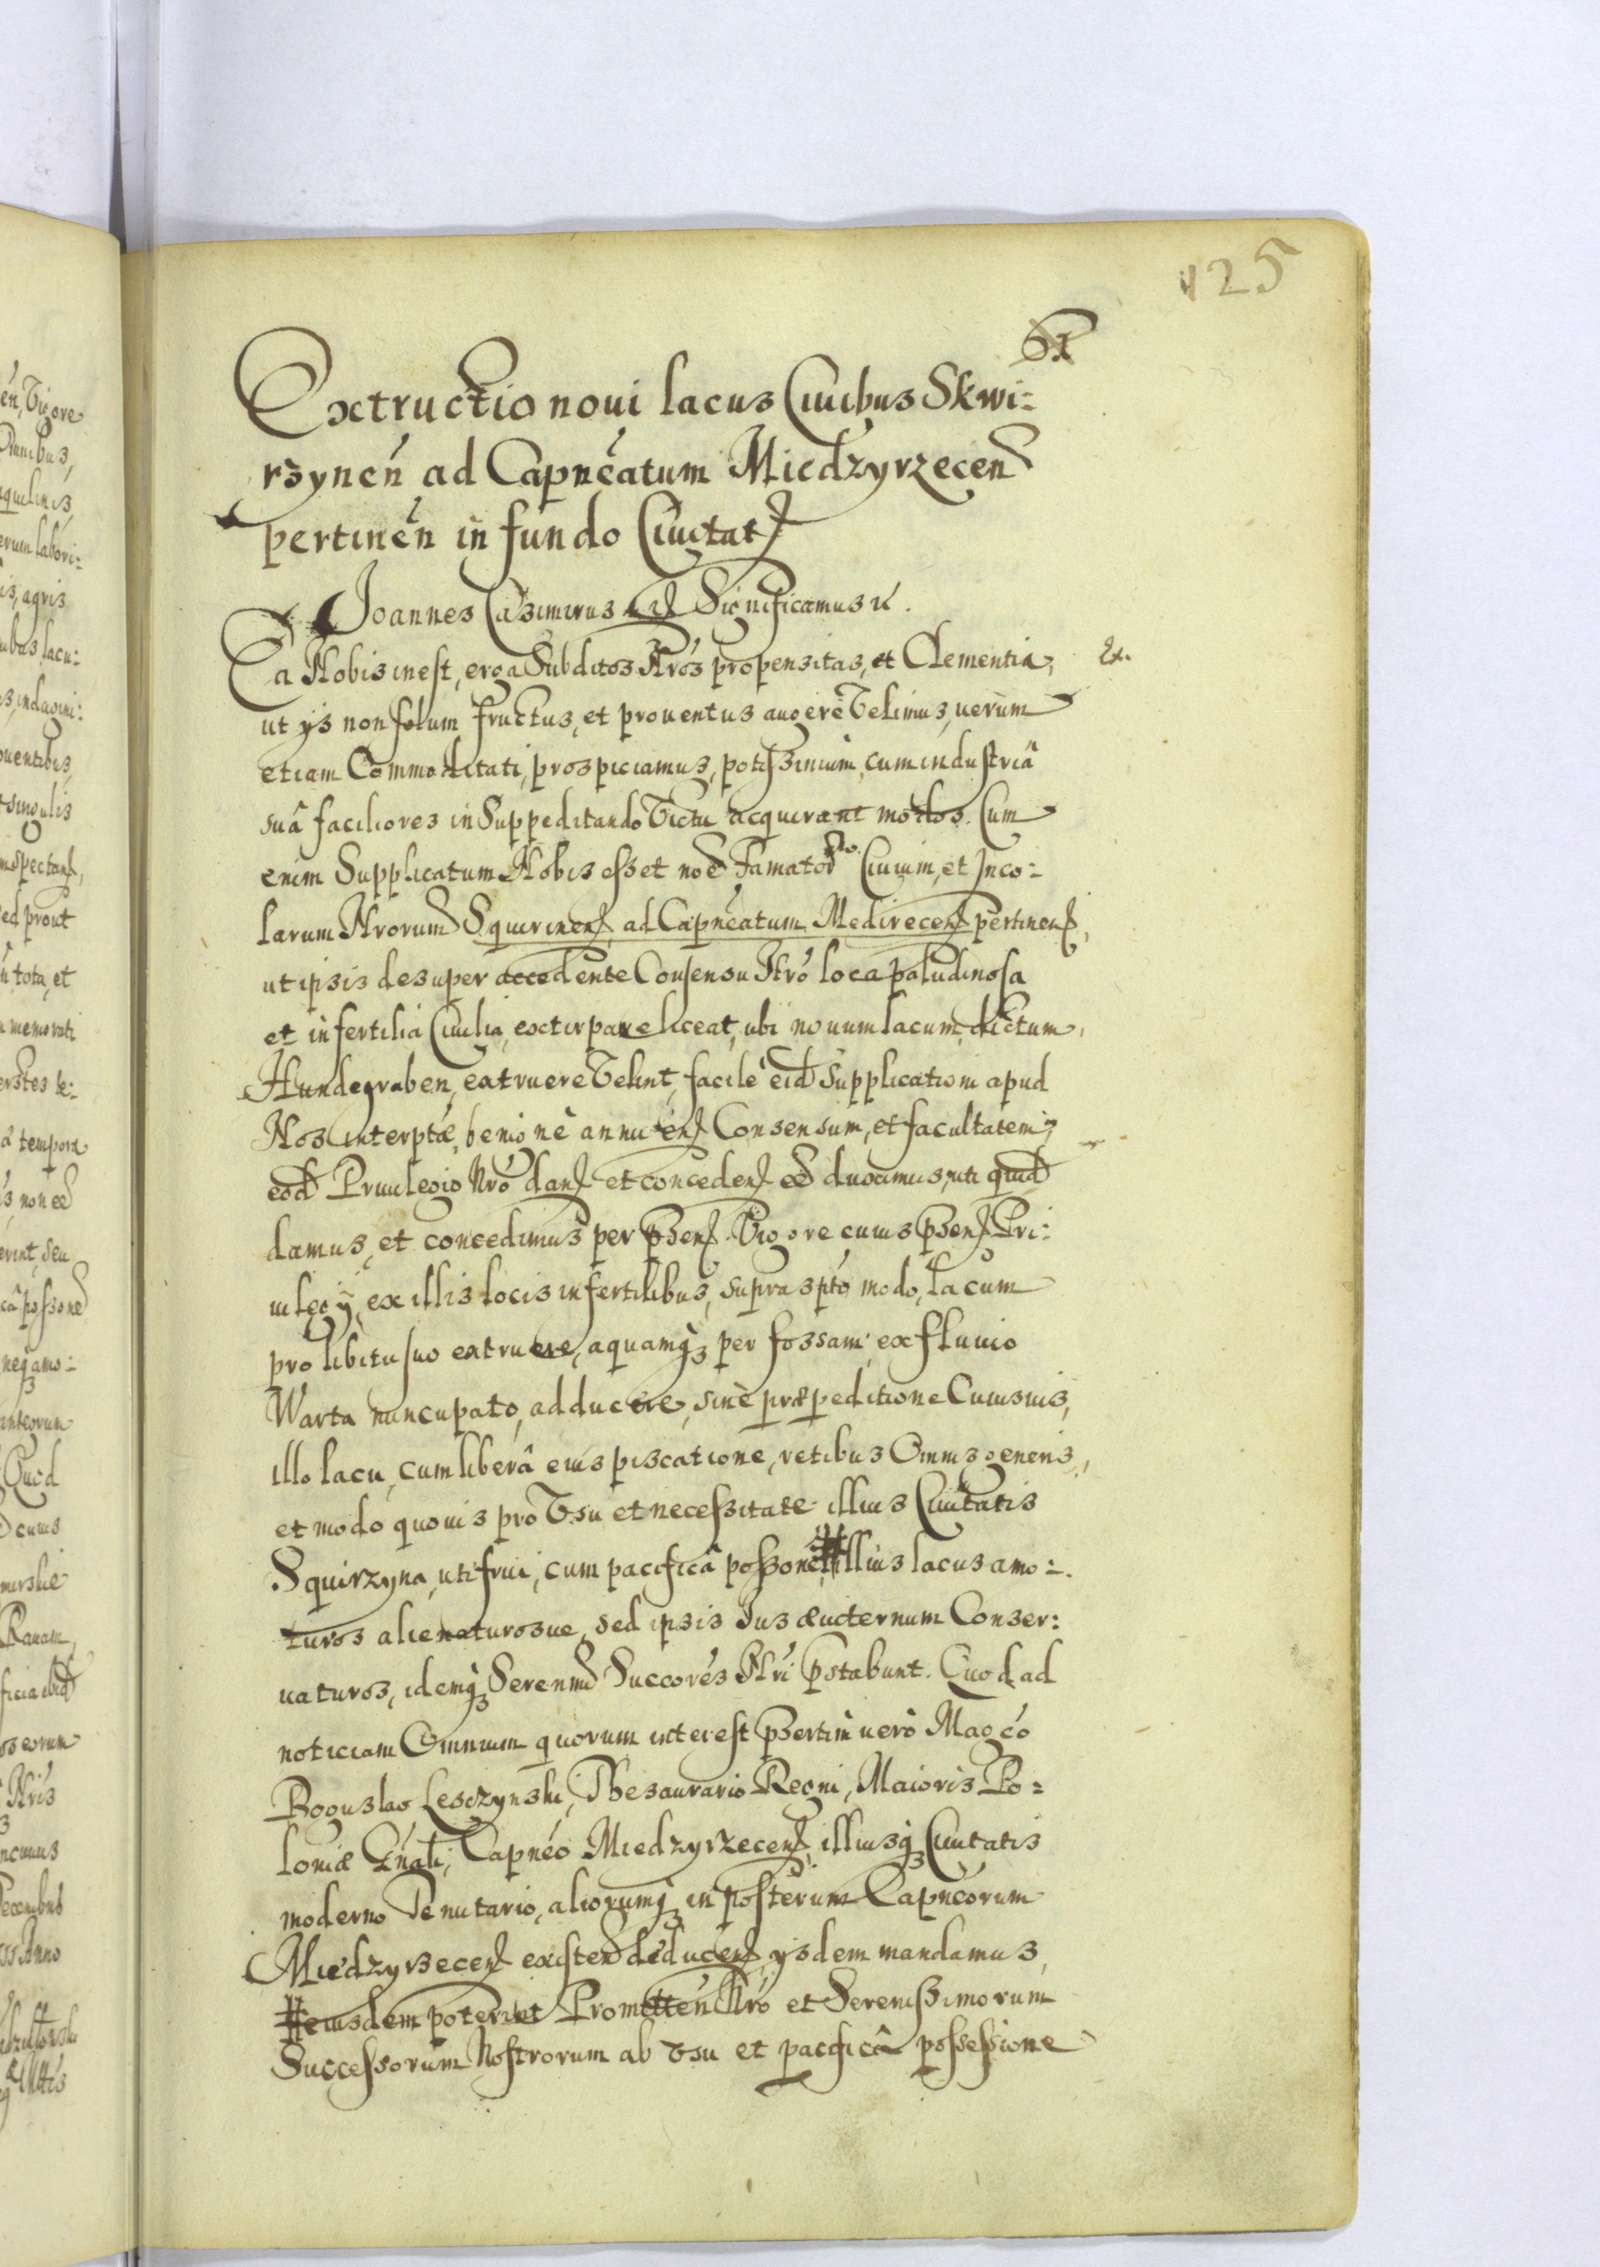 125
61
Extructio noui lacus Ciuibus Skwi:
rzynen̄ ad Capnēatum Miedzyrzecen
pertinen̄ in fundo Ciuitat
Joannes Casimirus Significamus
Ea Nobis inest, erga Subditos Nrós propensitas, et Clementia,
ut ys non solum fructus, et prouentus augere Velimus, uerùm
etiam Commoditati, prospiciamus, potissimùm, cum industriâ
suâ faciliores in Suppeditando Victu acquirant modos. Cum
enim Supplicatum Nobis esset noē Famator Ciuium, et Inco:
larum Nrorum Squirinen, ad Capnēatum Medirecen pertinen,
ut ipsis desuper accedente Consensu Nró loca paludinosa
et infertilia Ciuilia, exctirpare liceat, ubi nouum lacum dictum
Hundegraben, extruere Velint, facilè eid Supplicationi apud
Nos interptæ, benignè annuen Consensum, et facultatem,
eod Priuilegio Nrō dan et conceden duximus, uti quid
damus, et concedimus per pṡen. Vigore cuius pṡen Pri:
uilegÿ, ex illis locis infertilibus, supra spto modo, lacum
pro libitu suo extruere, aquamq3 per fossam, ex fluuio
Warta nuncupato, adducere, sinè præpeditione Cuiusuis,
illo lacu, cum liberâ eius piscatione, retibus Omnis generis,
et modo quouis pro Vsu et necessitate illius Ciuitatis
Squirzyna, uti frui, cum pacificâ possonē, # illius lacus amo:
turos alienaturosue, sed ipsis Jus æuiternum Conser:
uaturos, idemq3 Serenmi Succores Nri pstabunt. Quod ad
noticiam Omnium quorum interest psertim uerò Magco
Boguslao Lesczynski, Thesaurario Regni, Maioris Po:
loniæ Gnali, Capnēo Miedzyrzecen, illiusq3 Ciuitatis
moderno Tenutario, aliorumq3 in posterum Capnēorum
Miedzyrzecen existen deducen, ysdem mandamus,
# eiusdem poterint Promitten Nró et Serenissimorum
Successorum Nostrorum ab Vsu et pacificâ possessione